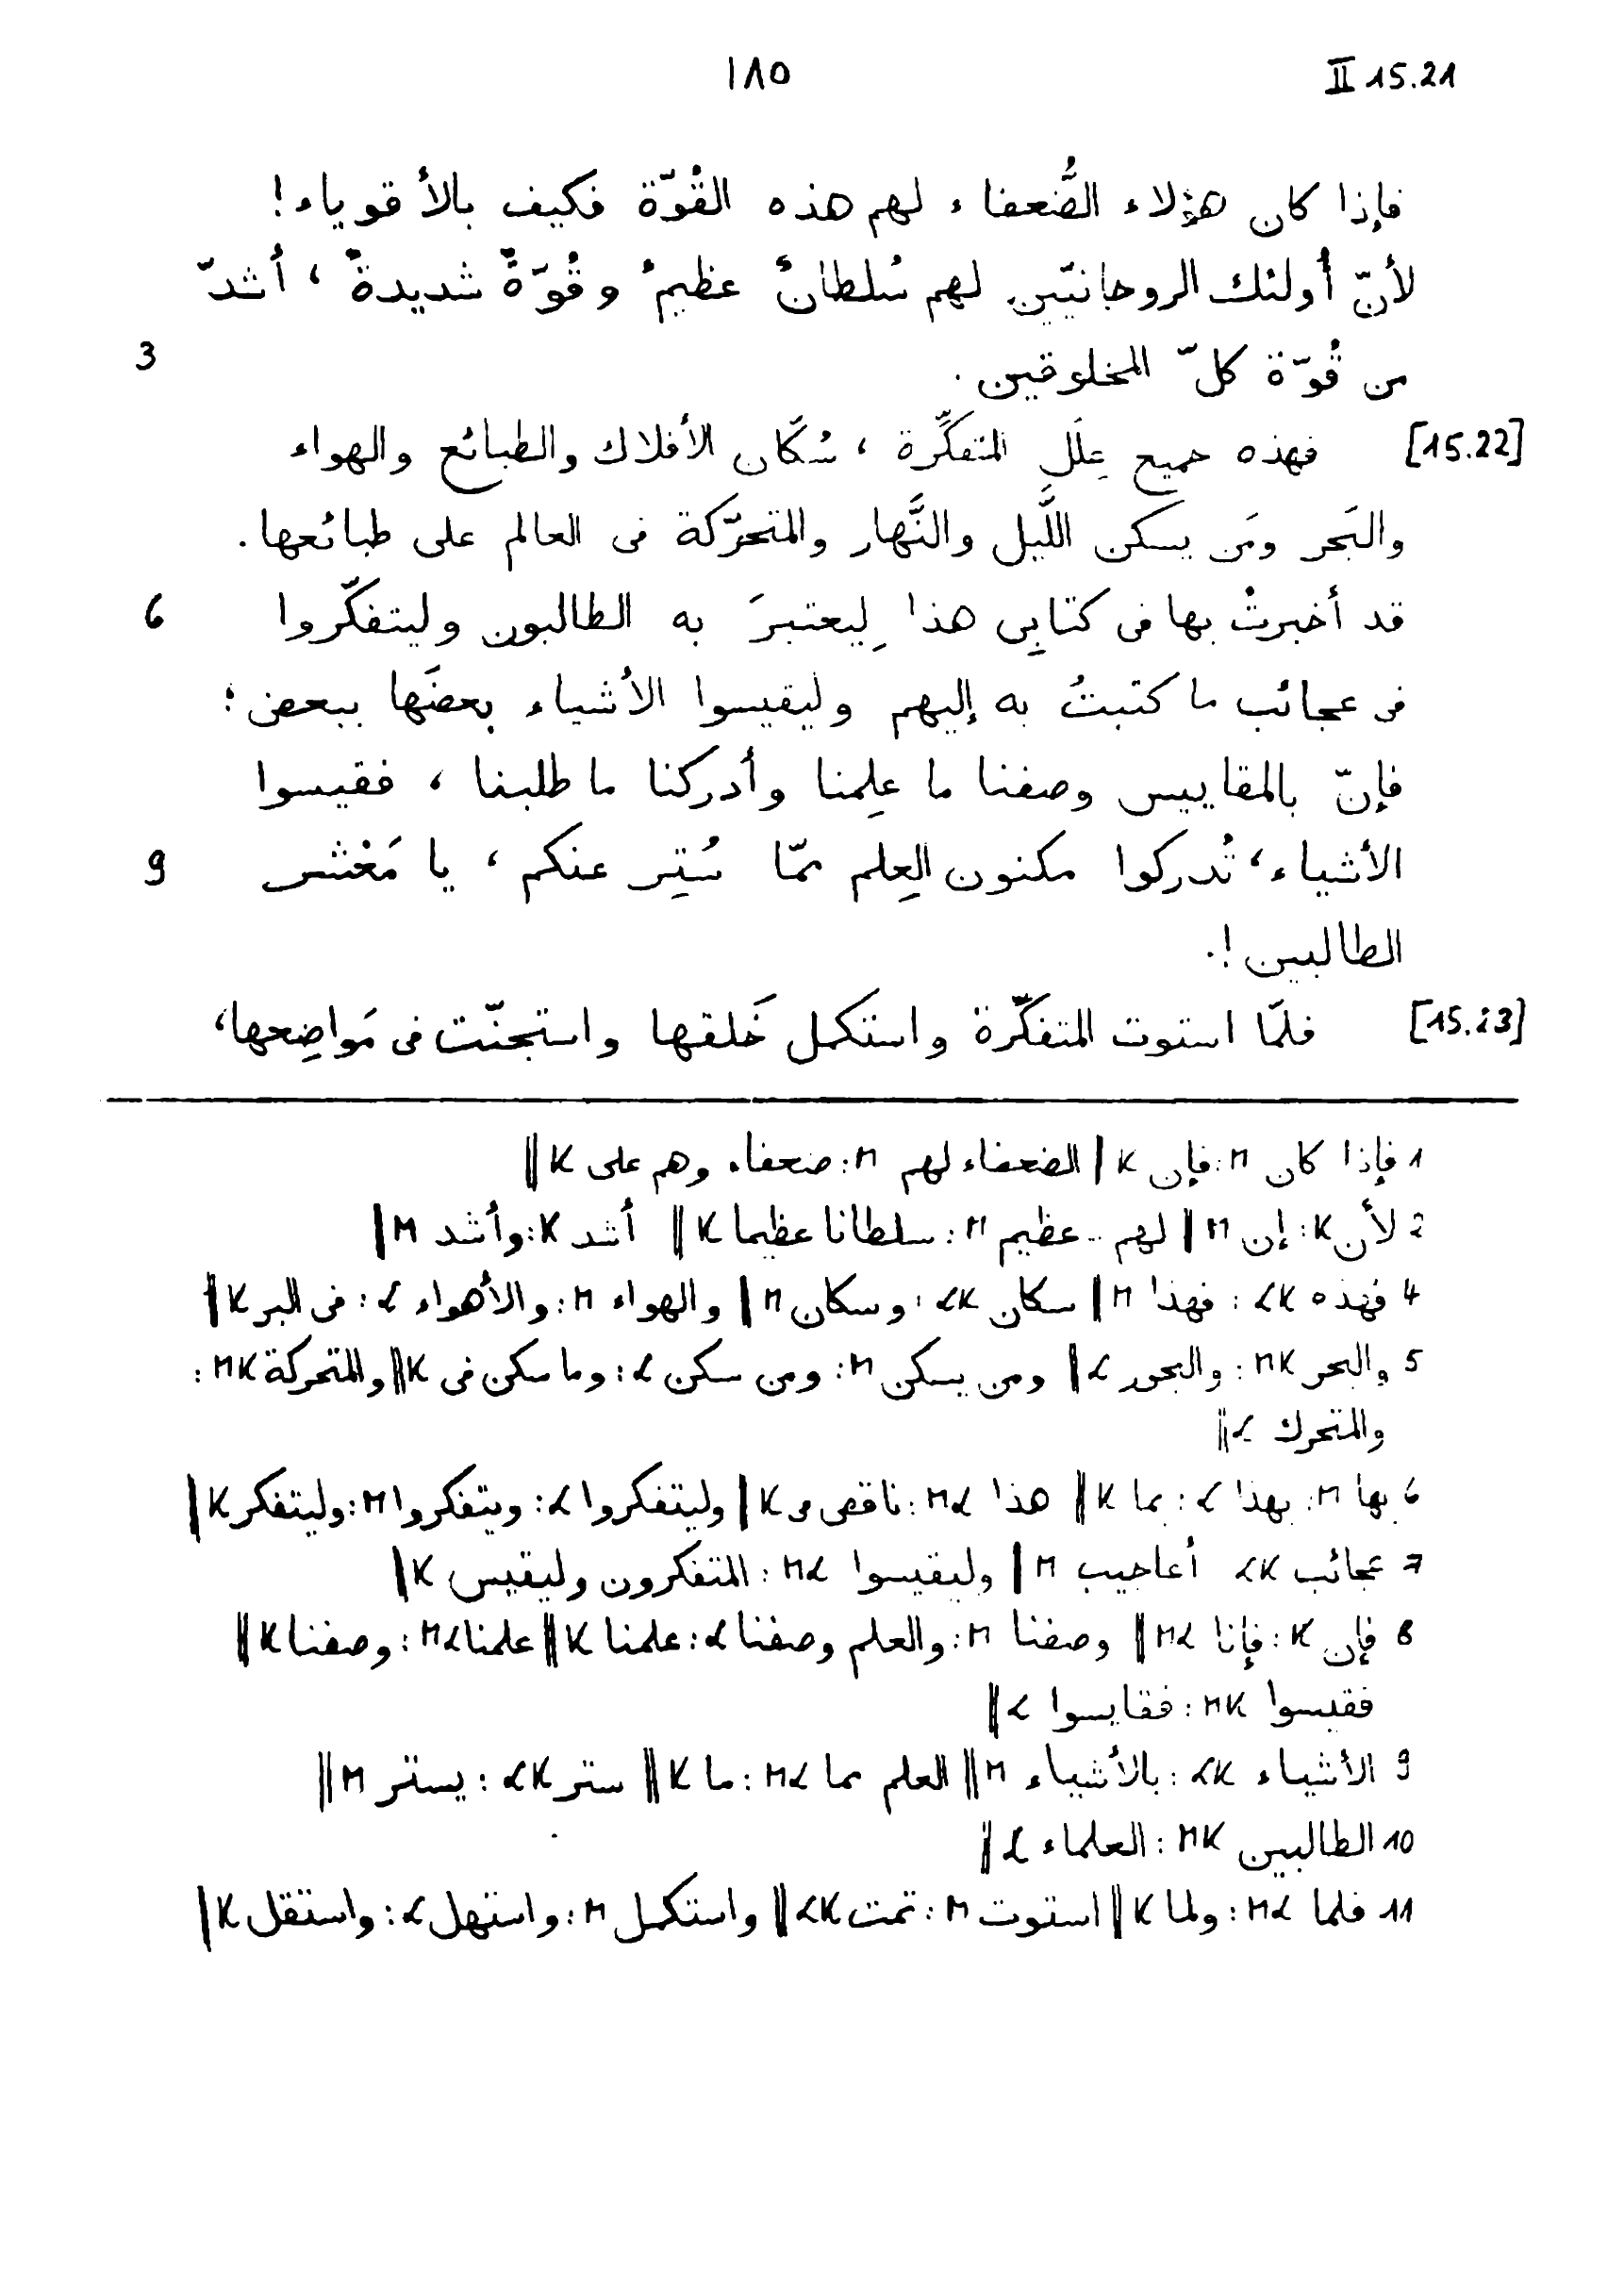 ١٨٥ II 15.21
فإذا كان هؤلاء الضُّعفاء لهم هذه القُوّة فكيف بالأقوياء!
لأنّ أُولئك الروحانيّين لهم سُلطانٌ عظيمٌ وقُوّةٌ شديدةٌ ، أشدّ
من قُوّة كلّ المخلوقين . 3
[15.22] فهذه جميع عِلَل المتفكِّرة ، سُكّان الأفلاك والطبائع والهواء
والبَحر ومَن يسكن اللَّيل والنَّهار والمتحرّكة فى العالم على طبائعها .
قد أخبرتُ بها فى كتابِى هذا لِيعتبرَ به الطالبون وليتفكّروا 6
فى عجائب ما كتبتُ به إليهم وليقيسوا الأشياء بعضَها ببعض ؛
فإنّ بالمقاييس وصفنا ما عِلِمنا وأدركنا ما طلبنا ، فقيسوا
الأشياء ، تُدركوا مكنون العِلم ممّا سُتِر عنكم ، يا مَعْشر 9
الطالبين !.
[15.23] فلمّا استوت المتفكّرة واستكمل خَلقها واستجنّت فى مَواضِعها ،
1 فإذا كان M : فإن K ‖ الضعفاء لهم M : ضعفاء وهم على K ‖
2 لأن K : إن M ‖ لهم .. عظيم M : سلطانا عظيما K ‖ أشد K : وأشد M ‖
4 فهذه LK : فهذا M ‖ سكان LK : وسكان M ‖ والهواء M : والأهواء L : فى البر K ‖
5 والبحر MK : والبحور L ‖ ومن يسكن M : ومن سكن L : وما سكن فى K ‖ والمتحركة MK :
والمتحرك L ‖
6 بها M : بهذا L : بما K ‖ هذا ML : ناقص فى K ‖ وليتفكروا L : ويتفكروا M : وليتفكر K ‖
7 عجائب LK أعاجيب M ‖ وليقيسوا ML : المتفكرون وليقيس K ‖
8 فإن K : فإنا ML ‖ وصفنا M : والعلم وصفنا L : علمنا K ‖ علمنا ML : وصفنا K ‖
فقيسوا MK : فقايسوا L ‖
9 الأشياء LK : بالأشياء M ‖ العلم مما ML : ما K ‖ ستر LK : يستر M ‖
10 الطالبين MK : العلماء L ‖
11 فلما ML : ولما K ‖ استوت M : تمت LK ‖ واستكمل M : واستهل L : واستقل K ‖